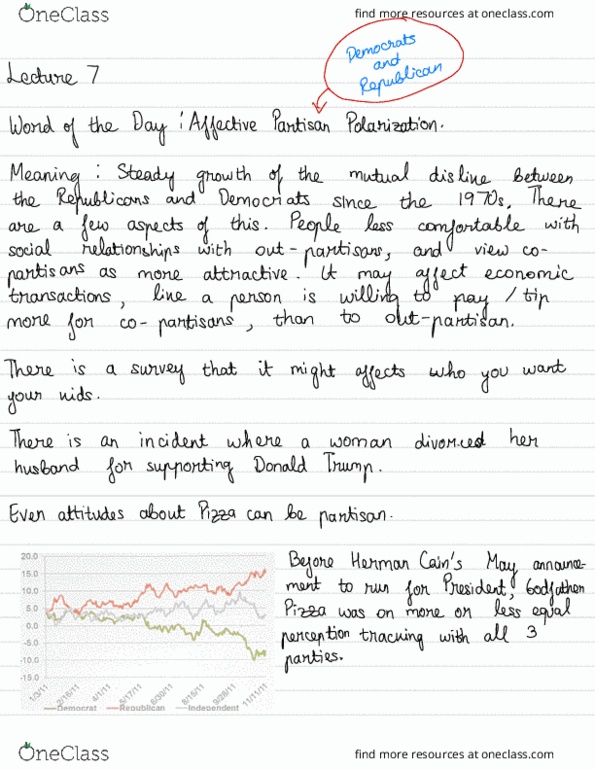 OneClass
find more resources at oneclass.com
Democrats
and
Republican
Lecture 7
Word of the Day : Affective Partisan Polarization.
Meaning : Steady growth of the mutual dislike between
the Republicans and Democrats since the 1970s. There
are a few aspects of this. People less comfortable with
social relationships with out-partisans, and view co-
partisans as more attractive. It may affect economic
transactions, like a person is willing to pay / tip
more for co-partisans, than to out-partisan.
There is a survey that it might affects who you want
your kids.
There is an incident where a woman divorced her
husband for supporting Donald Trump.
Even attitudes about Pizza can be partisan.
20.0
15.0
10.0
5.0
0.0
-5.0
-10.0
-15.0
1/3/11
2/16/11
4/1/11
5/17/11
6/30/11
8/15/11
9/28/11
11/11/11
Democrat
Republican
Independent
Before Herman Cain's May announce-
ment to run for President, Godfather
Pizza was on more or less equal
perception tracking with all 3
parties.
OneClass
find more resources at oneclass.com